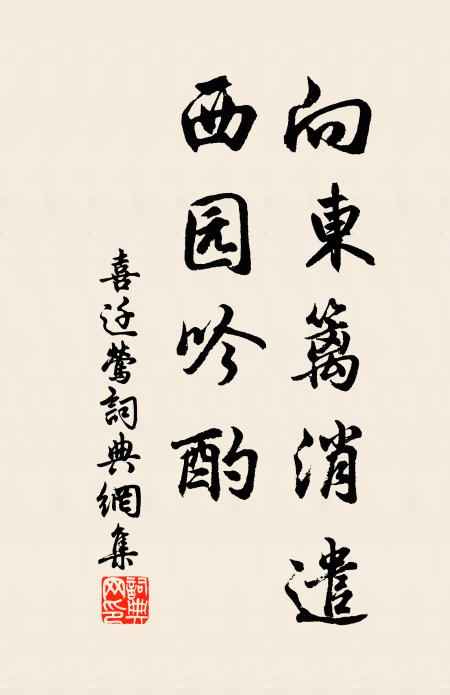 向東篱消遣
西园吟酌
喜迁莺詞典網集
詞典網印